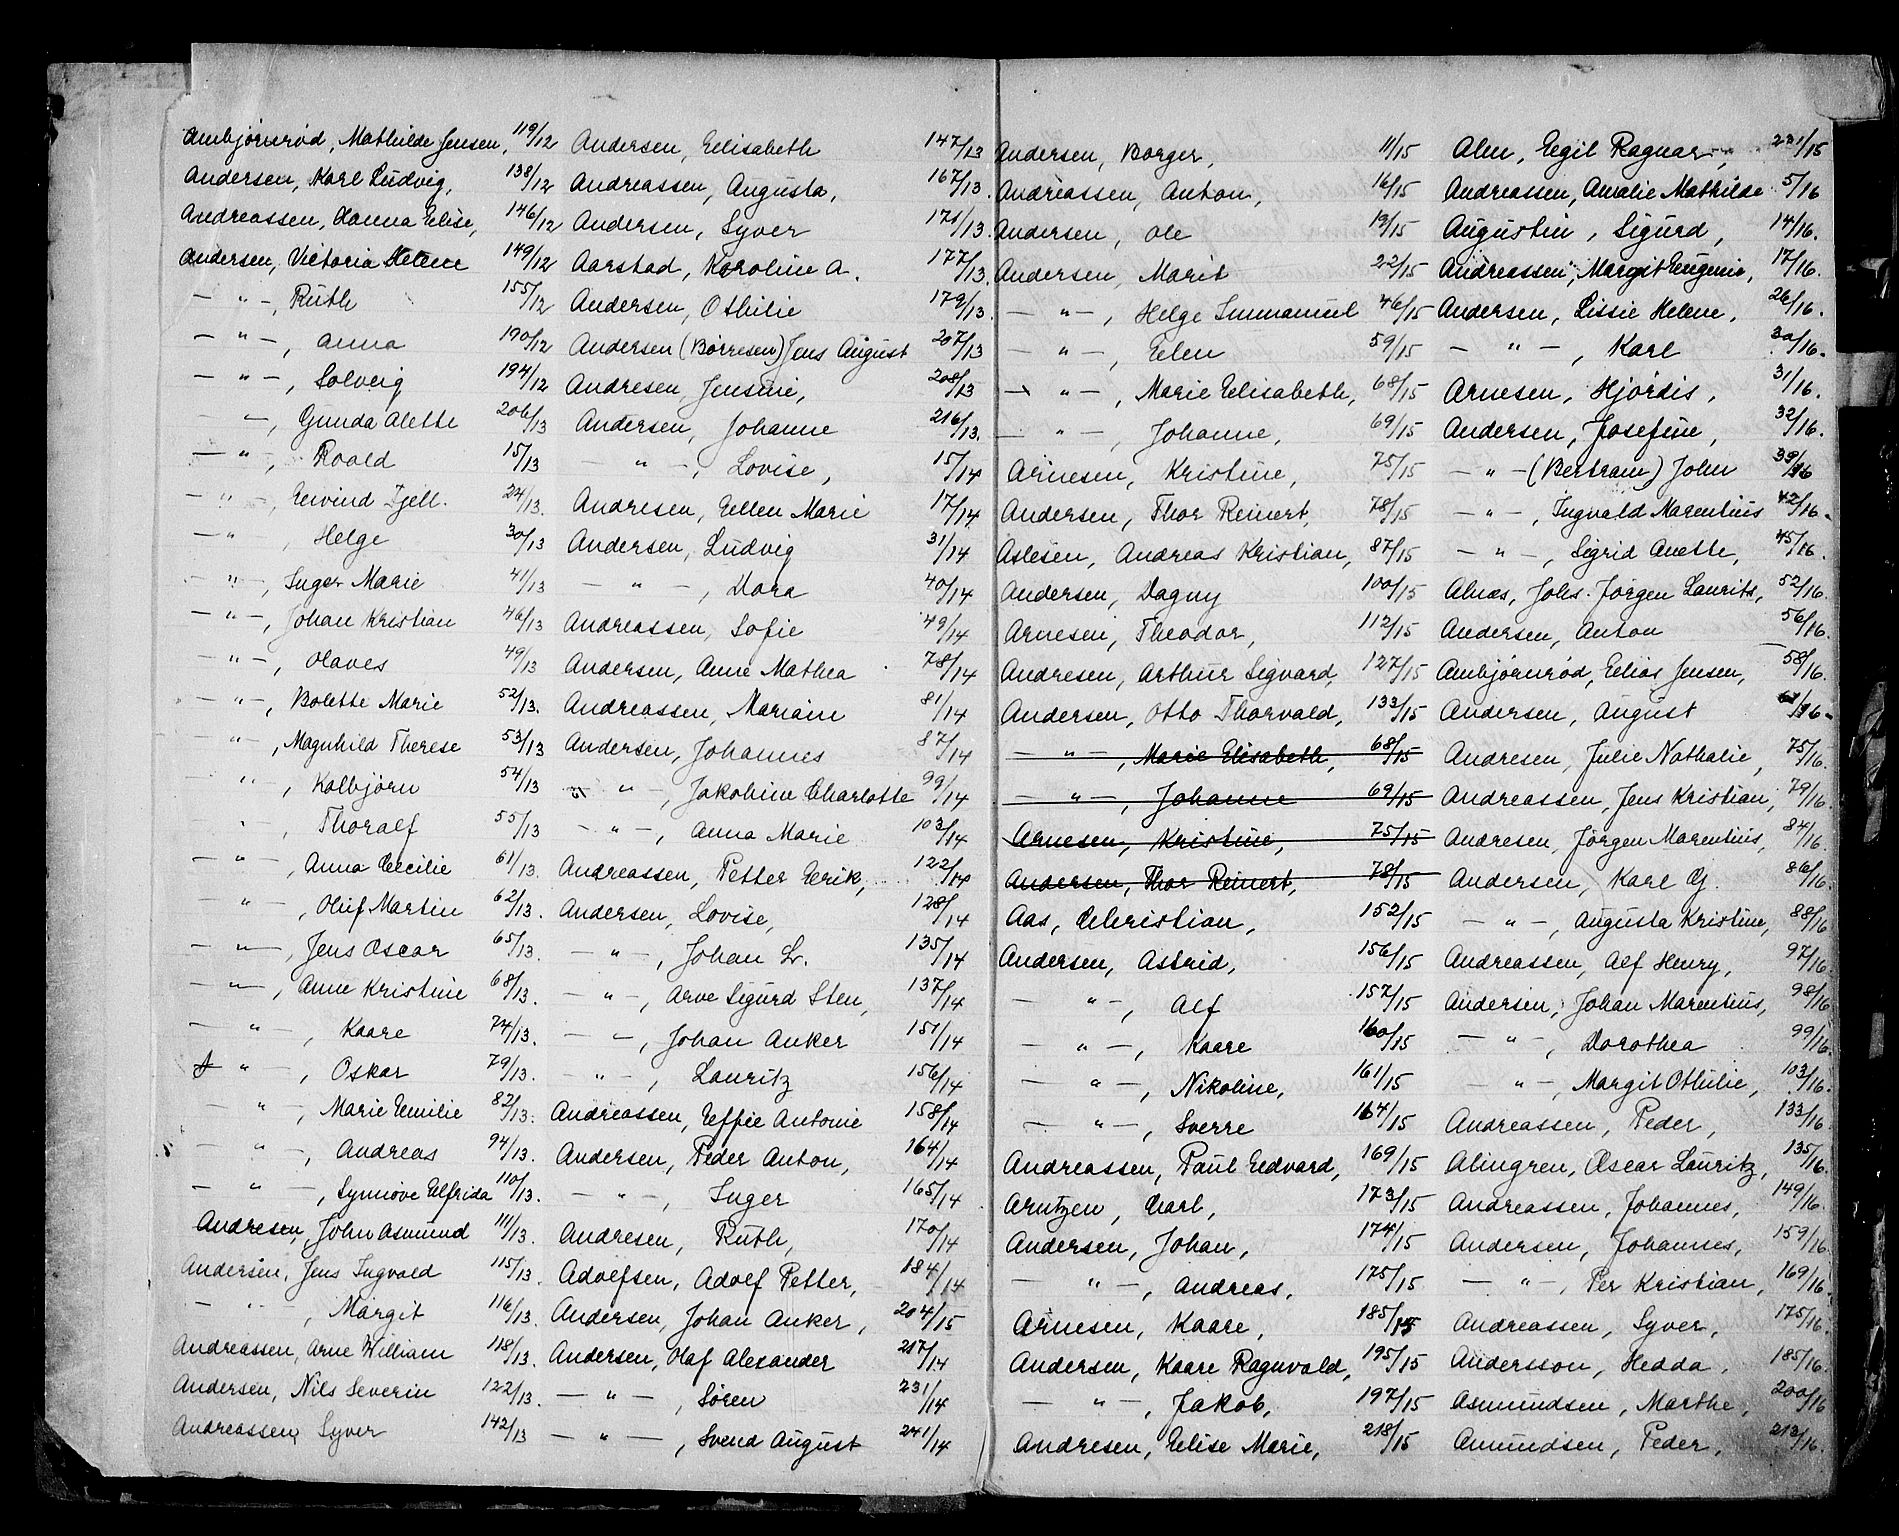 Ambjörnröd, Mathilde Jensen, 119/12
Andersen, Karl Ludvig, 138/12
Andreassen, Hanna Elise, 146/12
Andersen, Victoria Helene 149/12
— " —, Ruth 155/12
— " —, Anna 190/12
— " —, Solveig 194/12
" —, Gunda Alette 206/13
— " —, Roald 15/13
— " —, Eivind Kjell. 24/13.
— " , Helge 30/13
— " —, Inger Marie 41/13
— " —, Johan Kristian 46/13
— " —, Olaves 49/13
— " —, Bolette Marie 52/13.
— " —, Magnhild Therese 53/13
— " , Kolbjörn 54/13
" , Thoralf 55/13
— " —, Anna Cecilie 61/13.
— " —, Oluf Martin 62/13.
— " —, Jens Oscar 65/13.
— " —, Anne Kristine 68/13.
— " —, Kaare 74/13.
" —, Oskar 79/13.
— " —, Marie Emilie 82/13.
— " —, Andreas 94/13.
— " —, Synnöve Elfrida 110/13.
Andresen, John Asmund 111/13.
Andersen, Jens Ingvald 115/13.
— " —, Margit 116/13.
Andreassen, Arne William 118/13.
Andersen, Nils Severin 122/13.
Andreassen, Syver 142/13
Andersen, Elisabeth 147/13
Andreassen, Augusta, 167/13.
Andersen, Syver 171/13.
Aarstad, Karoline A. 177/13.
Andersen, Othilie 179/13.
Andersen (Börresen) Jens August 207/13
Andresen, Jensine, 208/13
Andersen, Johanne 216/13.
— " —, Lovise, 15/14
Andresen, Ellen Marie 17/14
Andersen, Ludvig 31/14
— " —, Dora 40/14
Andreassen, Sofie 49/14
Andersen, Anne Mathea 78/14
Andreassen, Mariam 81/14
Andersen, Johannes 87/14
" —, Jakobine Charlotte 99/14
— " —, Anna Marie 103/14
Andreassen, Petter Erik, 122/14
Andersen, Lovise, 128/14
— " —, Johan Lr. 135/14
— " —, Arve Sigurd Sten, 137/14
— " —, Johan Anker 151/14
— " —, Lauritz 156/14
Andreassen, Effie Antonie 158/14
Andersen, Peder Anton, 164/14
— " —, Inger 165/14
Andresen, Ruth, 170/14
Adolfsen, Adolf Petter, 184/14
Andersen, Johan Anker, 204/15
Andersen, Olaf Alexander 217/14
— " —, Sören 231/14
— " —, Svend August 241/14
Andersen, Borger, 11/15
Andreassen, Anton, 16/15
Andersen, Ole 19/15
Andersen, Marit 22/15
— " —, Helge Immanuel 46/15
— " —, Elen 59/15
— " —, Marie Elisabeth, 68/15
— " —, Johanne, 69/15
Arnesen, Kristine, 75/15
Andersen, Thor Reinert, 78/15
Aslesen, Andreas Kristian, 87/15
Andersen, Dagny 100/15
Arnesen, Theodor, 112/15
Andresen, Arthur Sigvard, 127/15
Andersen, Otto Thorvald, 133/15
— " —, Marie Elisabeth, 68/15
— " —, Johanne 69/15
Arnesen, Kristine, 75/15
Andersen, Thor Reinert, 78/15
Aas, Christian, 152/15
Andersen, Astrid, 156/15
— " —, Alf 157/15
— " —, Kaare 160/15
— " —, Nikoline, 161/15
— " —, Sverre 164/15
Andreassen, Paul Edvard, 169/15
Arntzen, Carl, 173/15
Andersen, Johan, 174/15
— " —, Andreas, 175/15
Arnesen, Kaare, 185/15
Andersen, Kaare Ragnvald, 195/15
— " —, Jakob, 197/15
Andresen, Elise Marie, 218/15
Alm, Egil Ragnar, 231/15
Andreassen, Amalie Mathilde 5/16
Augustin, Sigurd, 14/16.
Andreassen, Margit Eugenie, 17/16.
Andersen, Lissie Helene, 26/16.
— " —, Karl 30/16.
Arnesen, Hjördis, 31/16.
Andersen, Josefine, 32/16.
— " — (Bertram) John 39/16
— " —, Ingvald Marentius 42/16.
— " —, Sigrid Anette, 45/16.
Alnæs, Johs. Jörgen Laurits, 52/16.
Andersen, Anton 56/16.
Ambjörnröd, Elias Jensen, 58/16.
Andersen, August 61/16.
Andresen, Julie Nathalie, 75/16.
Andreassen, Jens Kristian, 79/16.
Andresen, Jörgen Marentius, 84/16.
Andersen, Karl G. 86/16.
— " —, Augusta Kristine, 88/16
Andreassen, Alf Henry, 97/16.
Andersen, Johan Marentius, 98/16
— " —, Dorothea 99/16.
— " —, Margit Othilie, 103/16.
Andreassen, Peder, 133/16
Almgren, Oscar Lauritz, 135/16.
Andreassen, Johannes, 149/16.
Andersen, Johannes, 159/16.
— " —, Per Kristian, 169/16.
Andreassen, Syver, 175/16.
Andersson, Hedda, 185/16.
Asmundsen, Marthe, 200/16
Amundsen, Peder, 212/16.